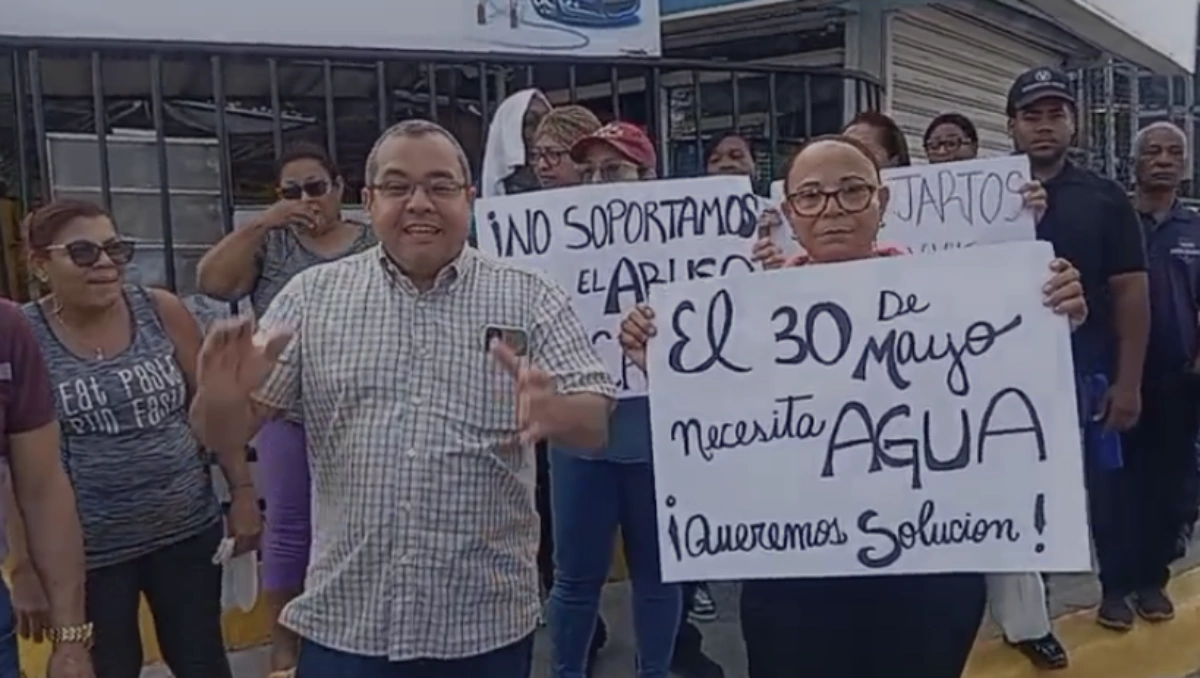 ¡NO SOPORTAMOS
EL ABUSO
JARTOS
El 30 DE Mayo
necesita AGUA
¡Queremos Solucion!
EAT PASTA
RUN FAST